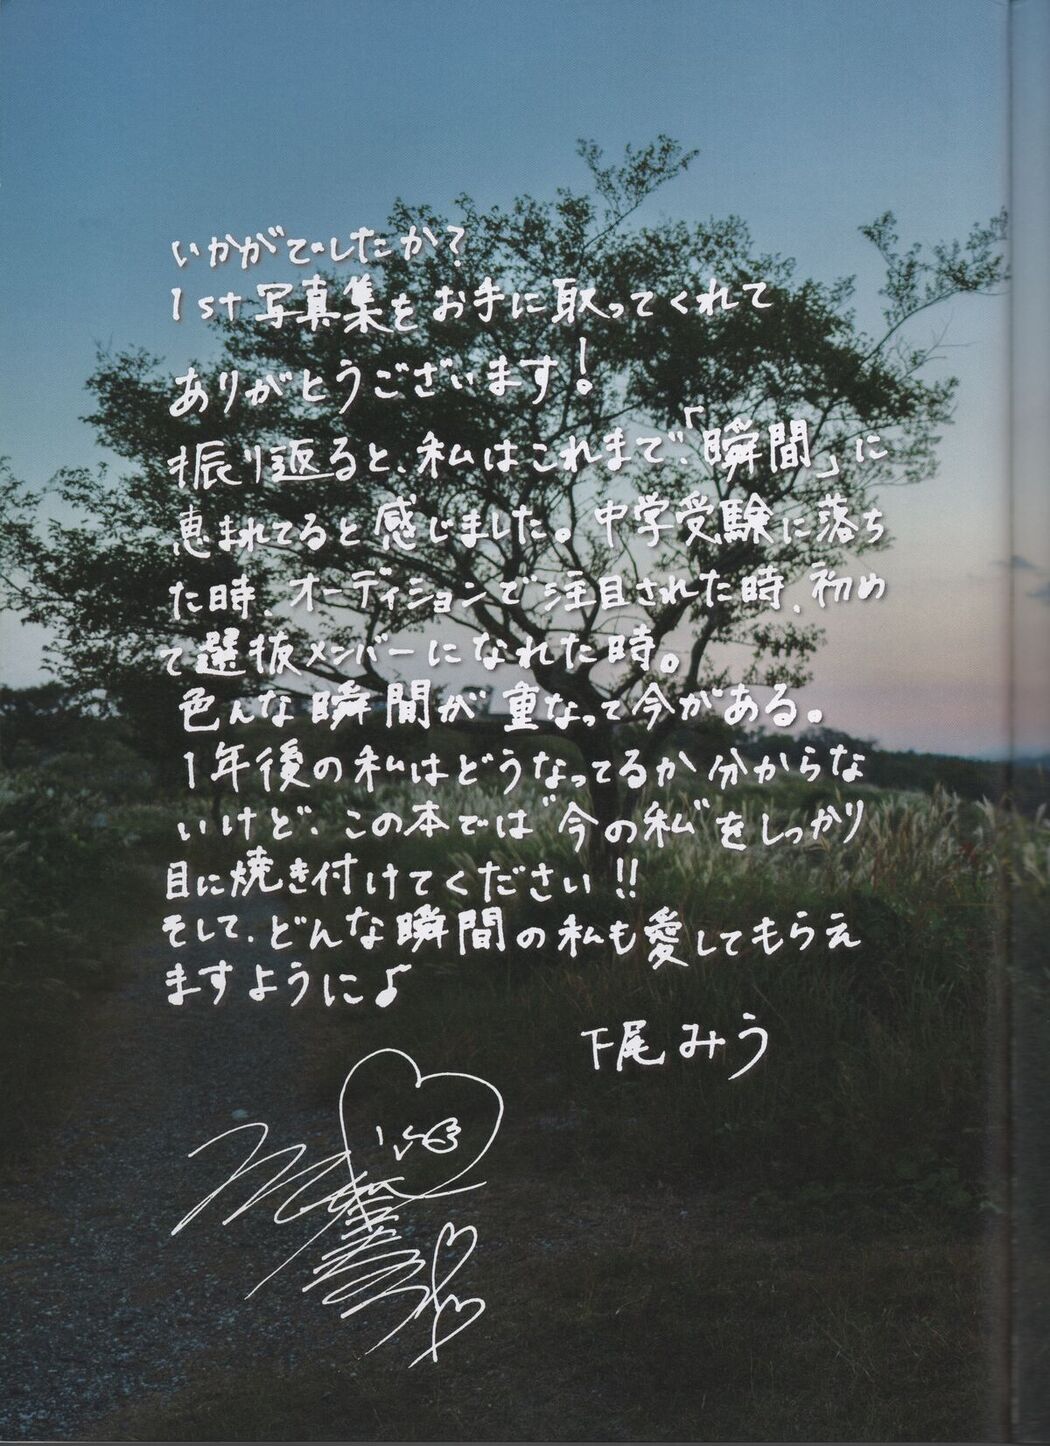 いかがでしたか?
1st写真集をお手に取ってくれて
ありがとうございます!
振り返ると、私はこれまで、「瞬間」に
恵まれてると感じました。中学受験に落ち
た時、オーディションで注目された時、初め
て選抜メンバーになれた時。
色んな瞬間が重なって今がある。
1年後の私はどうなってるか分からな
いけど、この本では“今の私”をしっかり
目に焼き付けてください!!
そして、どんな瞬間の私も愛してもらえ
ますように♪
下尾みう